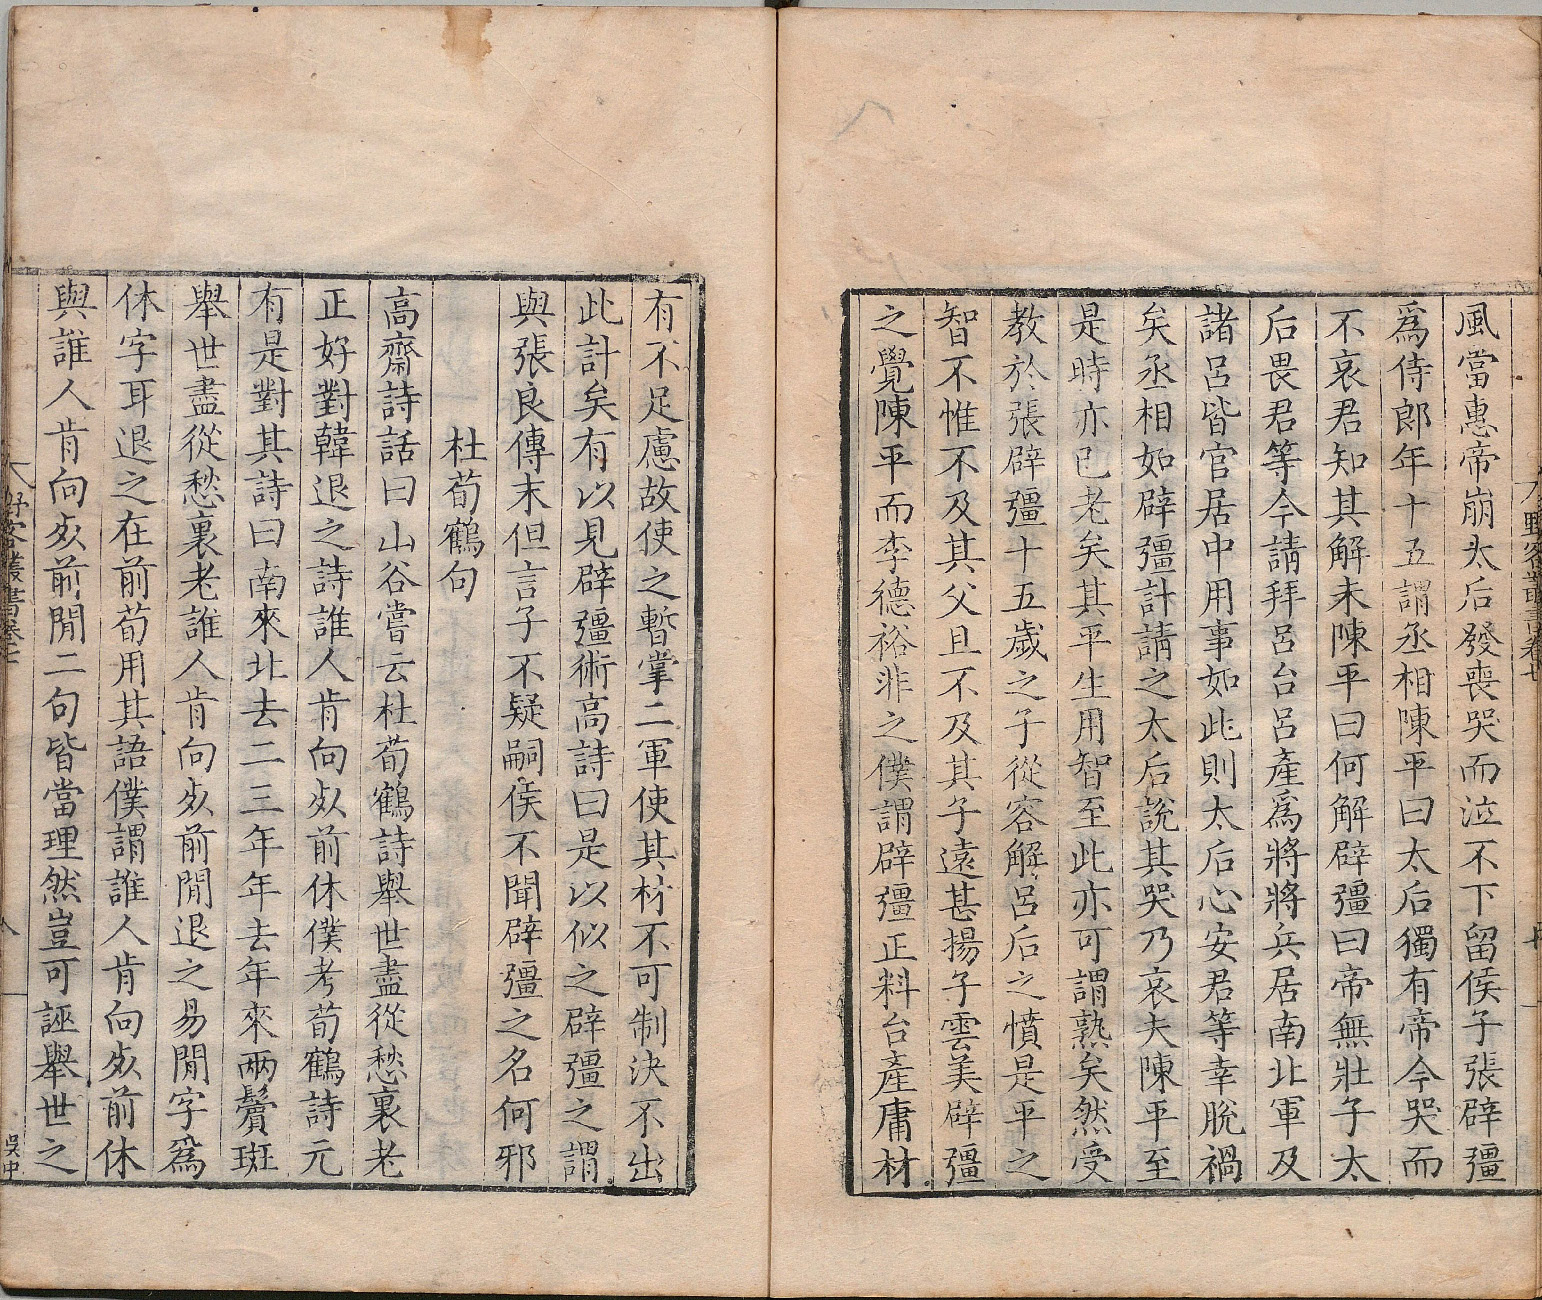 風當惠帝崩太后發喪哭而泣不下留侯子張辟彊
爲侍郎年十五謂丞相陳平曰太后獨有帝今哭而
不哀君知其解未陳平曰何解辟彊曰帝無壯子太
后畏君等今請拜呂台呂產爲將將兵居南北軍及
諸呂皆官居中用事如此則太后心安君等幸脫禍
矣丞相如辟彊計請之太后說其哭乃哀夫陳平至
是時亦已老矣其平生用智至此亦可謂熟矣然受
教於張辟彊十五歲之子從容解呂后之憤是平之
智不惟不及其父且不及其子遠甚揚子雲美辟彊
之覺陳平而李德裕非之僕謂辟彊正料台產庸材
有不足慮故使之暫掌二軍使其材不可制決不出
此計矣有以見辟彊術高詩曰是以似之辟彊之謂
與張良傳末但言子不疑嗣侯不聞辟彊之名何邪
杜荀鶴句
高齋詩話曰山谷嘗云杜荀鶴詩舉世盡從愁裏老
正好對韓退之詩誰人肯向㱠前休僕考荀鶴詩元
有是對其詩曰南來北去二三年年去年來兩鬢斑
舉世盡從愁裏老誰人肯向㱠前閒退之易閒字爲
休字耳退之在前荀用其語僕謂誰人肯向㱠前休
與誰人肯向㱠前閒二句皆當理然豈可誣舉世之
野客叢書卷
吳中